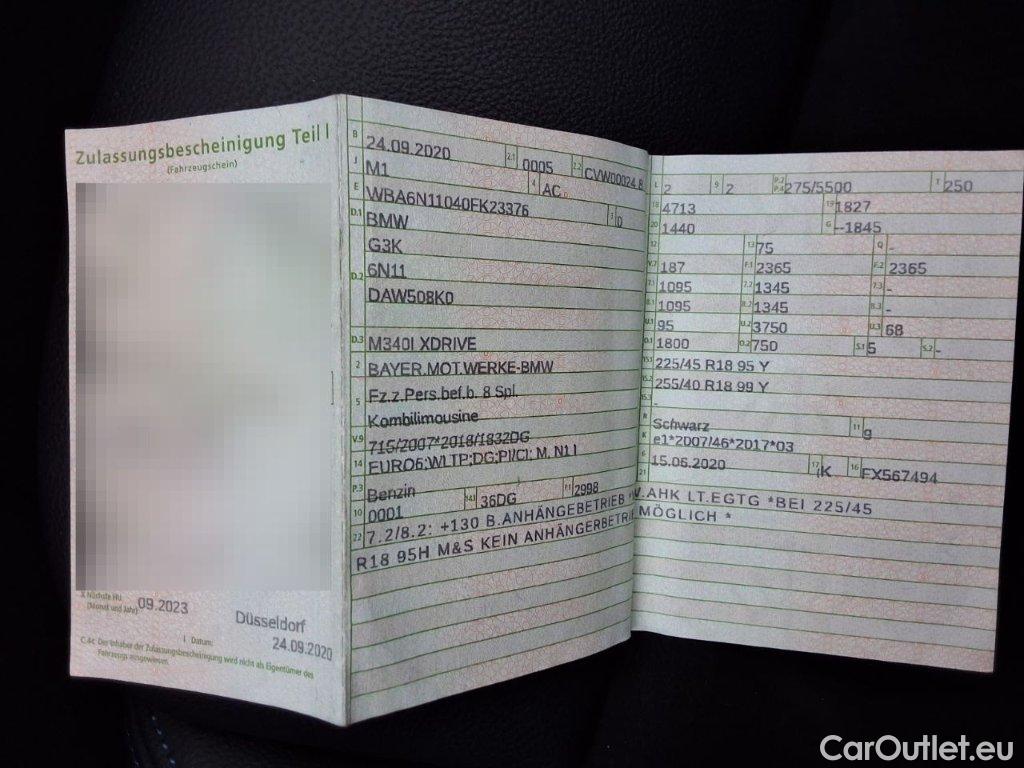 Zulassungsbescheinigung Teil I
(Fahrzeugschein)
X Nächste HU
(Monat und Jahr) 09.2023
Düsseldorf
I Datum: 24.09.2020
C.4c Der Inhaber der Zulassungsbescheinigung wird nicht als Eigentümer des
Fahrzeugs ausgewiesen.
B 24.09.2020 2.1 0005 2.2 CVW00024 8
J M1 4 AC
E WBA6N11040FK23376 3 0
D.1 BMW
G3K
D.2 6N11
DAW508K0
D.3 M340I XDRIVE
2 BAYER.MOT.WERKE-BMW
5 Fz.z.Pers.bef.b. 8 Spl.
Kombilimousine
V.9 715/2007*2018/1832DG
14 EURO6;WLTP;DG;PI/CI; M, N1 I
P.3 Benzin
10 0001 14.1 36DG P.1 2998
22 7.2/8.2: +130 B.ANHÄNGEBETRIEB *W.AHK LT.EGTG *BEI 225/45
R18 95H M&S KEIN ANHÄNGERBETRIEB MÖGLICH *
L 2 9 2 P.2 P.4 275/5500 T 250
18 4713 19 1827
20 1440 G --1845
12 13 75 Q -
V.7 187 F.1 2365 F.2 2365
7.1 1095 7.2 1345 7.3 -
8.1 1095 8.2 1345 8.3 -
U.1 95 U.2 3750 U.3 68
O.1 1800 O.2 750 S.1 5 S.2 -
15.1 225/45 R18 95 Y
15.2 255/40 R18 99 Y
15.3 -
R Schwarz 11 g
K e1*2007/46*2017*03
6 15.06.2020 17 K 16 FX567494
21
CarOutlet.eu